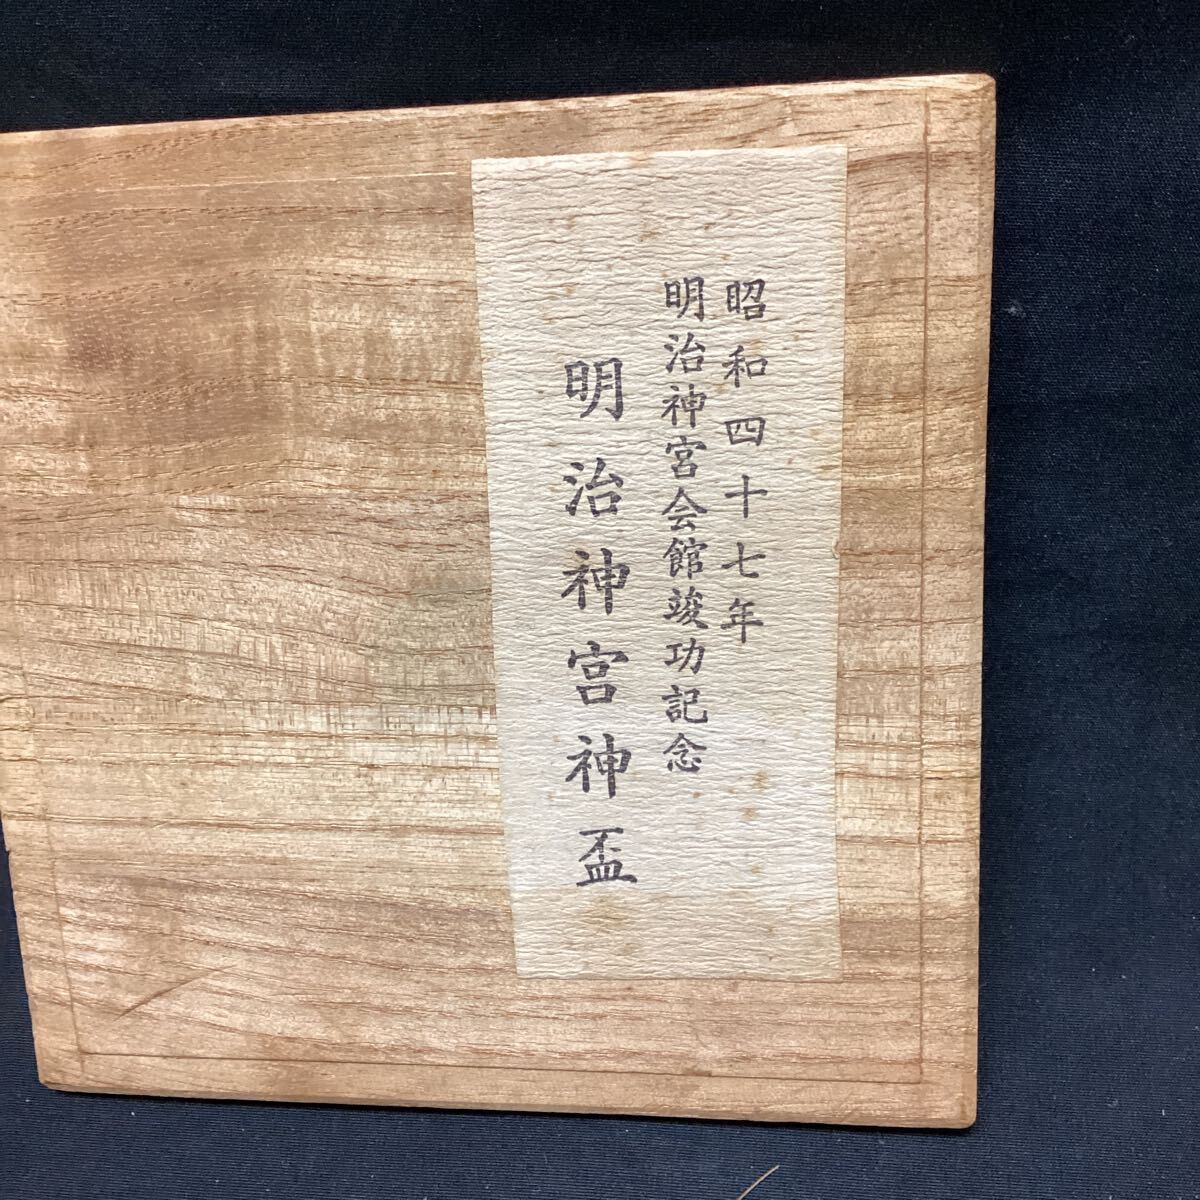 昭和四十七年
明治神宮会館竣功記念
明治神宮神盃